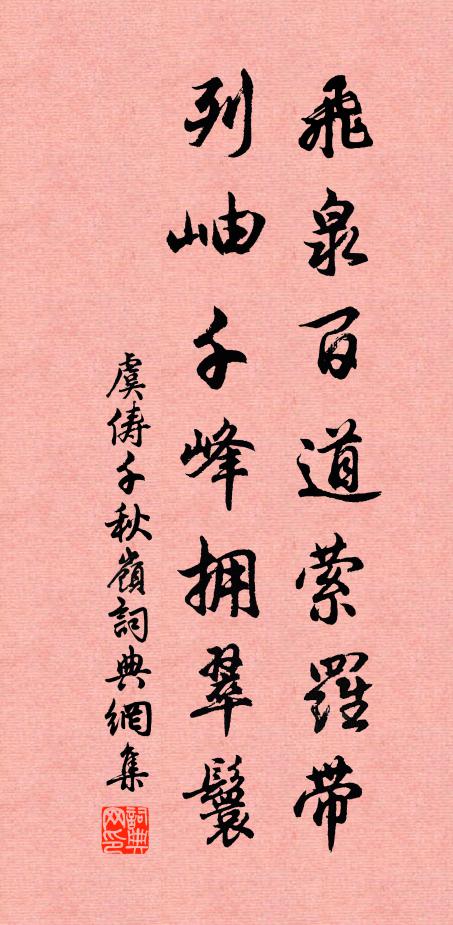 飛泉百道縈羅帶
列岫千峰拥翠鬟
虞儔千秋嶺詞典網集
詞典网印